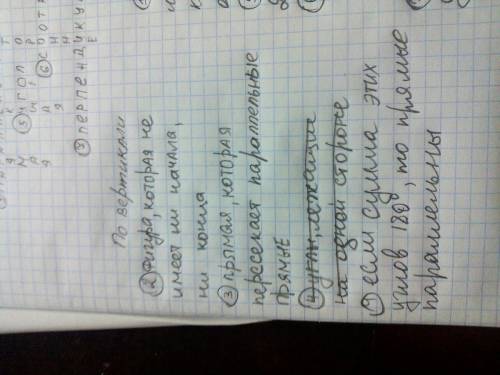 ⑤ УГОЛ
⑥ СООТ
⑦ ПЕРПЕНДИКУ
По вертикали
② Фигура, которая не
имеет ни начала,
ни конца
③ прямая, которая
пересекает параллельные
прямые
④ углы, лежащие
на одной стороне
① если сумма этих
углов 180°, то прямые
параллельны